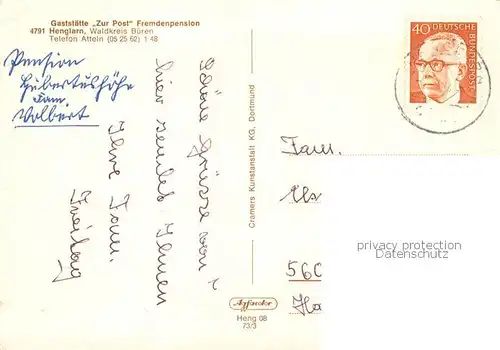 Gaststätte „Zur Post" Fremdenpension
4791 Henglarn, Waldkreis Büren
Telefon Atteln (05 25 62) 1 48
Pension
Hubertushöhe
Fam.
Volbert
Schöne Grüsse von
hier sendet Ihnen
Ihre Fam.
Freitag
Cramers Kunstanstalt KG, Dortmund
Agfacolor
Heng 08
73/3
40 DEUTSCHE BUNDESPOST
Fam.
560
Ha
privacy protection
www.ansichtskartenversand.com